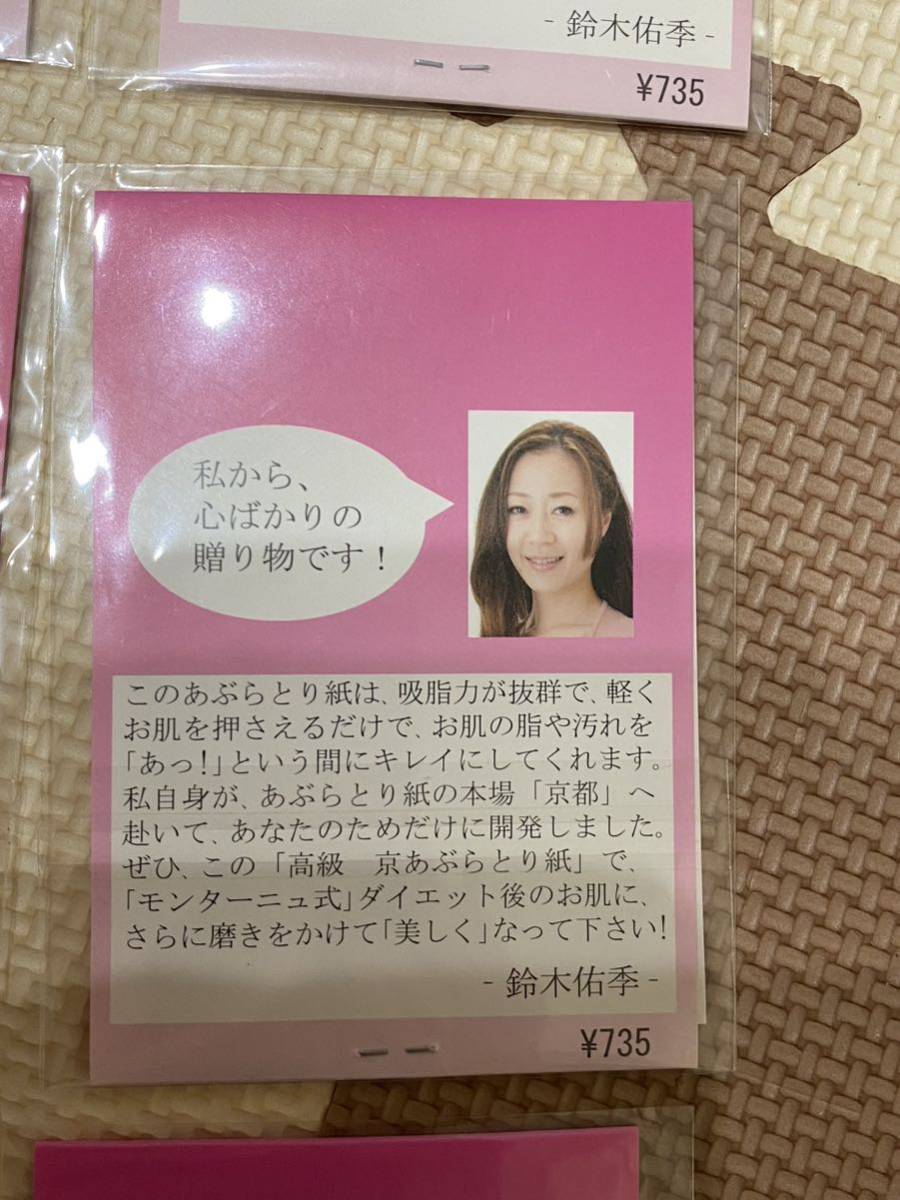 - 鈴木佑季 -
¥735
私から、
心ばかりの
贈り物です！
このあぶらとり紙は、吸脂力が抜群で、軽く
お肌を押さえるだけで、お肌の脂や汚れを
「あっ！」という間にキレイにしてくれます。
私自身が、あぶらとり紙の本場「京都」へ
赴いて、あなたのためだけに開発しました。
ぜひ、この「高級　京あぶらとり紙」で、
「モンターニュ式」ダイエット後のお肌に、
さらに磨きをかけて「美しく」なって下さい！
- 鈴木佑季 -
¥735